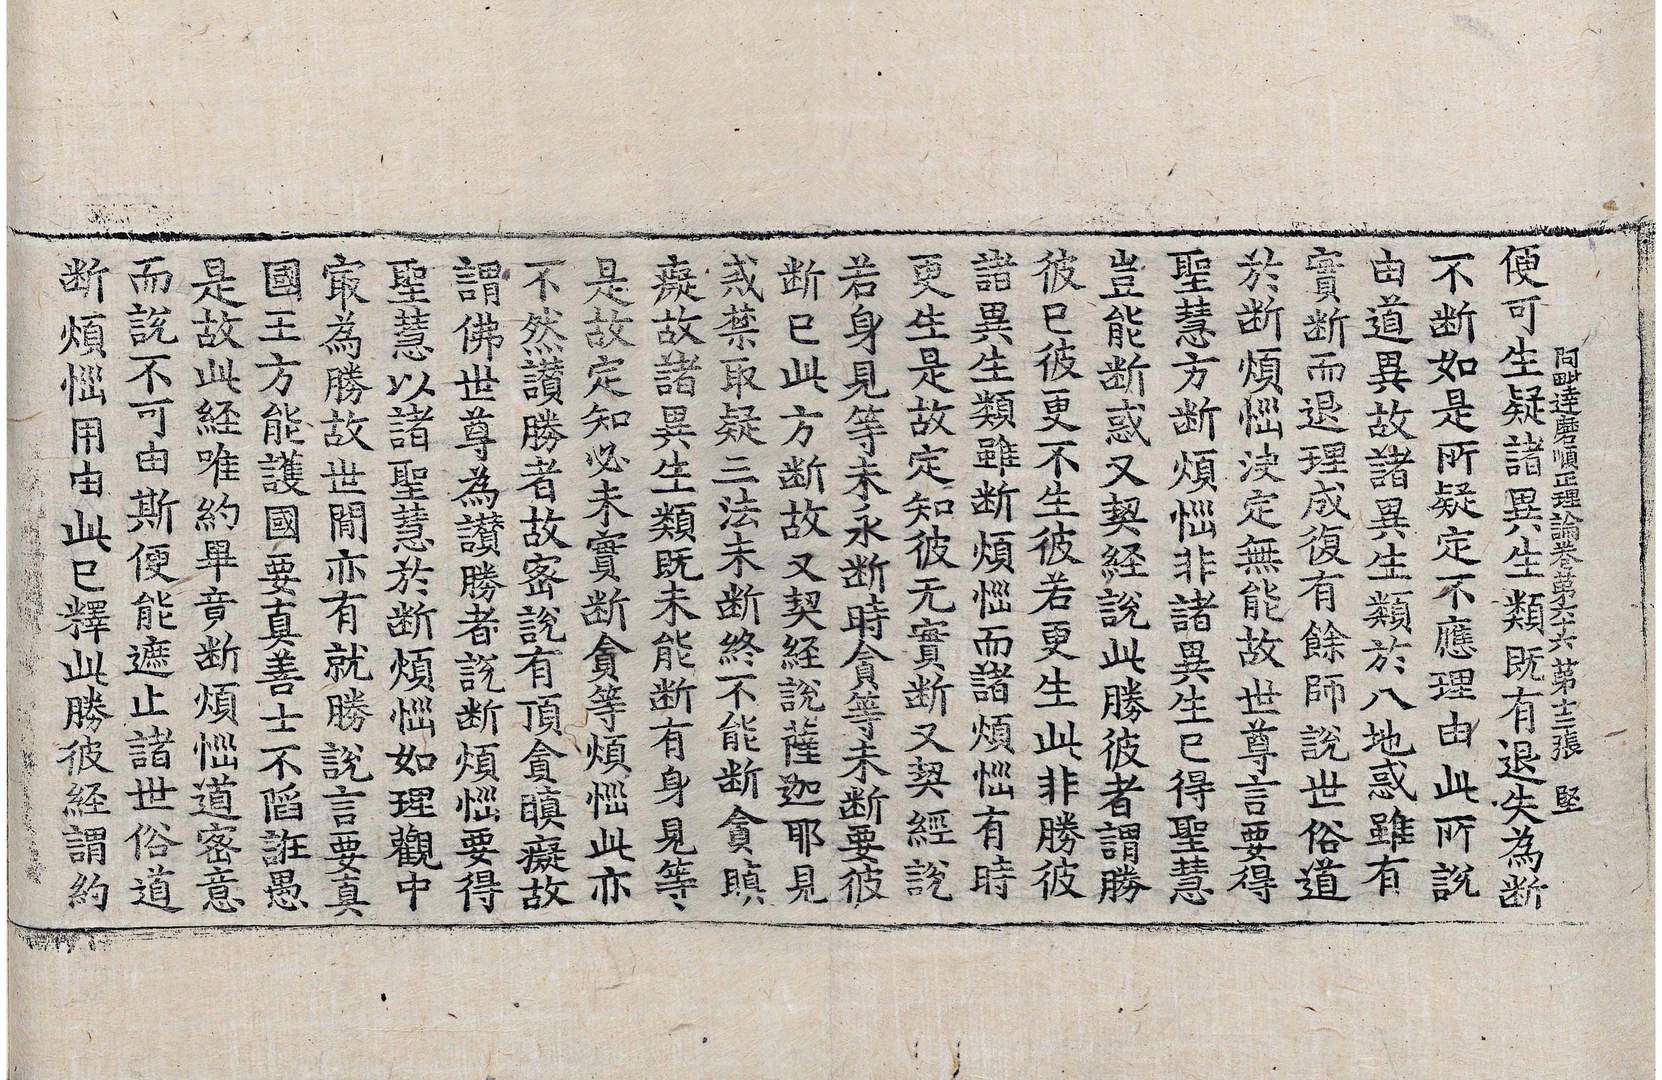 阿毗達磨順正理論卷第六十六 第十三張 堅
便可生疑諸異生類既有退失為断
不断如是所疑定不應理由此所說
由道異故諸異生類於八地惑雖有
實断而退理成復有餘師說世俗道
於断煩惱決定無能故世尊言要得
聖慧方断煩惱非諸異生已得聖慧
豈能断惑又契経說此勝彼者謂勝
彼已彼更不生彼若更生此非勝彼
諸異生類雖断煩惱而諸煩惱有時
更生是故定知彼无實断又契經說
若身見等未永断時貪等未断要彼
断已此方断故又契経說薩迦耶見
戒禁取疑三法未断終不能断貪瞋
癡故諸異生類既未能断有身見等
是故定知必未實断貪等煩惱此亦
不然讃勝者故密說有頂貪瞋癡故
謂佛世尊為讃勝者說断煩惱要得
聖慧以諸聖慧於断煩惱如理觀中
㝡為勝故世間亦有就勝說言要真
國王方能護國要真善士不陷誑愚
是故此経唯約畢竟断煩惱道密意
而說不可由斯便能遮止諸世俗道
断煩惱用由此已釋此勝彼経謂約